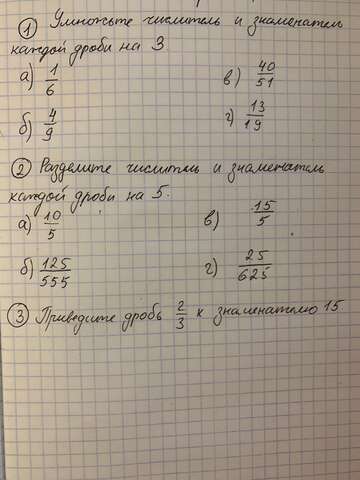 ① Умножьте числитель и знаменатель
каждой дроби на 3.
а) 1/6 в) 40/51
б) 4/9 г) 13/19
② Разделите числитель и знаменатель
каждой дроби на 5.
а) 10/5 в) 15/5
б) 125/555 г) 25/625
③ Приведите дробь 2/3 к знаменателю 15.